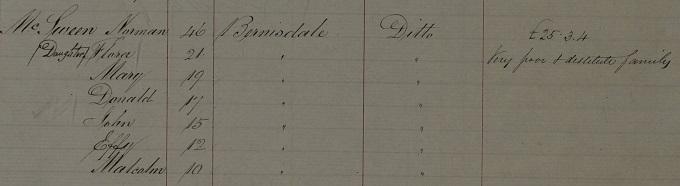 McSween Norman 46 Bernisdale Ditto £25-3.4
(Daughter) Flora 21 " " Very poor & destitute family
Mary 19 " "
Donald 17 " "
John 15 " "
Effy 12 " "
Malcolm 10 " "